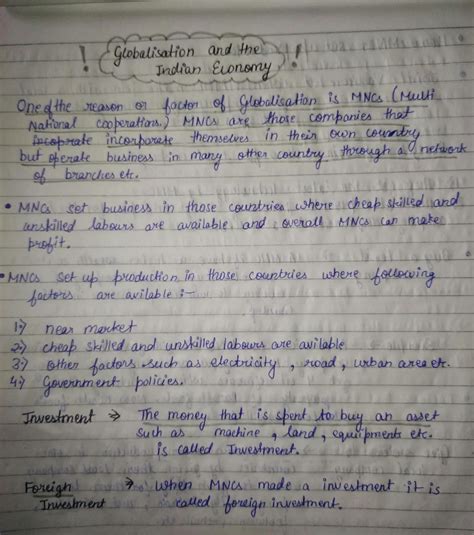 ! Globalisation and the !
Indian Economy
One of the reason or factor of Globalisation is MNCs (Multi
National cooperations.) MNCs are those companies that
incoprate incorporate themselves in their own country
but operate business in many other country through a network
of branches etc.
• MNCs set business in those countries where cheap skilled and
unskilled labours are available and overall MNCs can make
profit.
• MNCs set up production in those countries where following
factors are avilable :-
1) near market
2) cheap skilled and unskilled labours are avilable
3) other factors such as electricity, road, urban area etc.
4) Government policies.
Investment → The money that is spent to buy an asset
such as machine, land, equipments etc.
is called Investment.
Foreign → when MNCs made a investment it is
Investment called foreign investment.